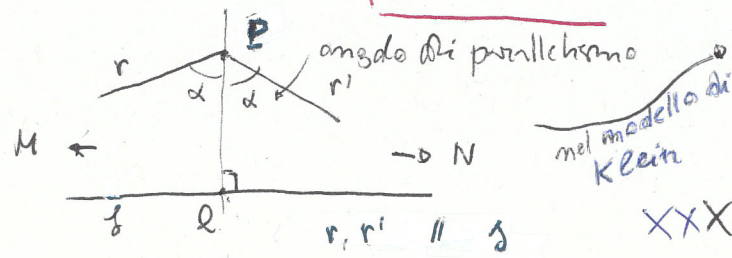 P
r
angolo di parallelismo
α α r'
M ← → N
nel modello di
Klein
s Q
r, r' // s
XXX